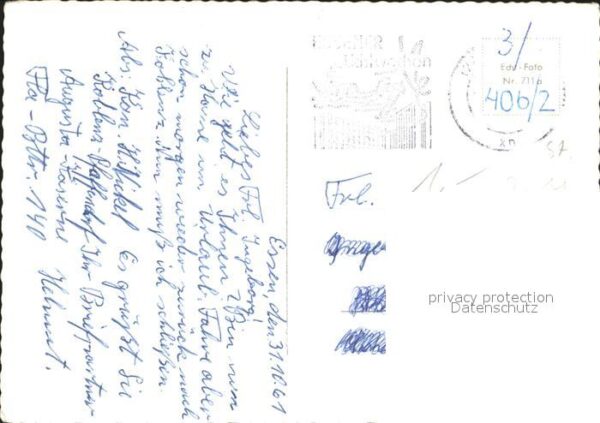 Essen, den 31.10.61
Liebes Frl. Ingeborg!
Wie geht es Ihnen? Bin nun
zu Hause in Urlaub. Fahre aber
schon morgen wieder zurück nach
Koblenz. Nun muß ich schließen.
Es grüßt Sie
Ihr Briefpartner
Helmut.
Abs: H. Nickel
Koblenz-Pfaffendorf
Augusta-Kaserne
Fla-Bttr. 140
3/
Edu-Foto
Nr. 711 b
406/2
Frl.
1.-
privacy protection
Datenschutz